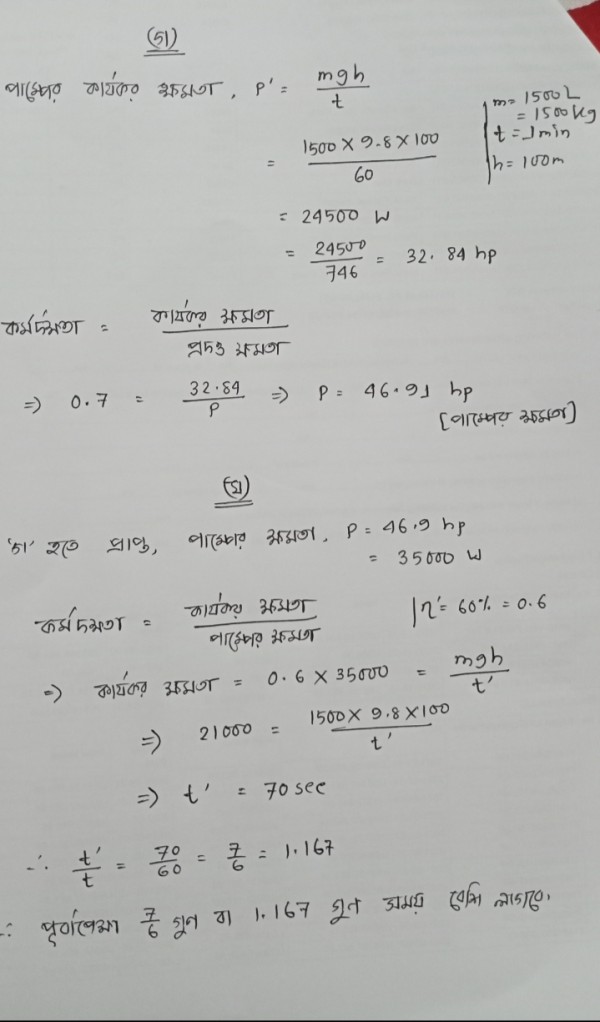 (গ)
পাম্পের কার্যকর ক্ষমতা, P' = mgh / t
m = 1500 L
= 1500 kg
t = 1 min
h = 100m
= 1500 × 9.8 × 100 / 60
= 24500 W
= 24500 / 746 = 32.84 hp
কর্মদক্ষতা = কার্যকর ক্ষমতা / প্রদত্ত ক্ষমতা
⇒ 0.7 = 32.84 / P ⇒ P = 46.91 hp
[পাম্পের ক্ষমতা]
(ঘ)
'গ' হতে প্রাপ্ত, পাম্পের ক্ষমতা, P = 46.9 hp
= 35000 W
কর্মদক্ষতা = কার্যকর ক্ষমতা / পাম্পের ক্ষমতা | η' = 60% = 0.6
⇒ কার্যকর ক্ষমতা = 0.6 × 35000 = mgh / t'
⇒ 21000 = 1500 × 9.8 × 100 / t'
⇒ t' = 70 sec
∴ t' / t = 70 / 60 = 7 / 6 = 1.167
∴ পূর্বাপেক্ষা 7/6 গুন বা 1.167 গুন সময় বেশি লাগবে।